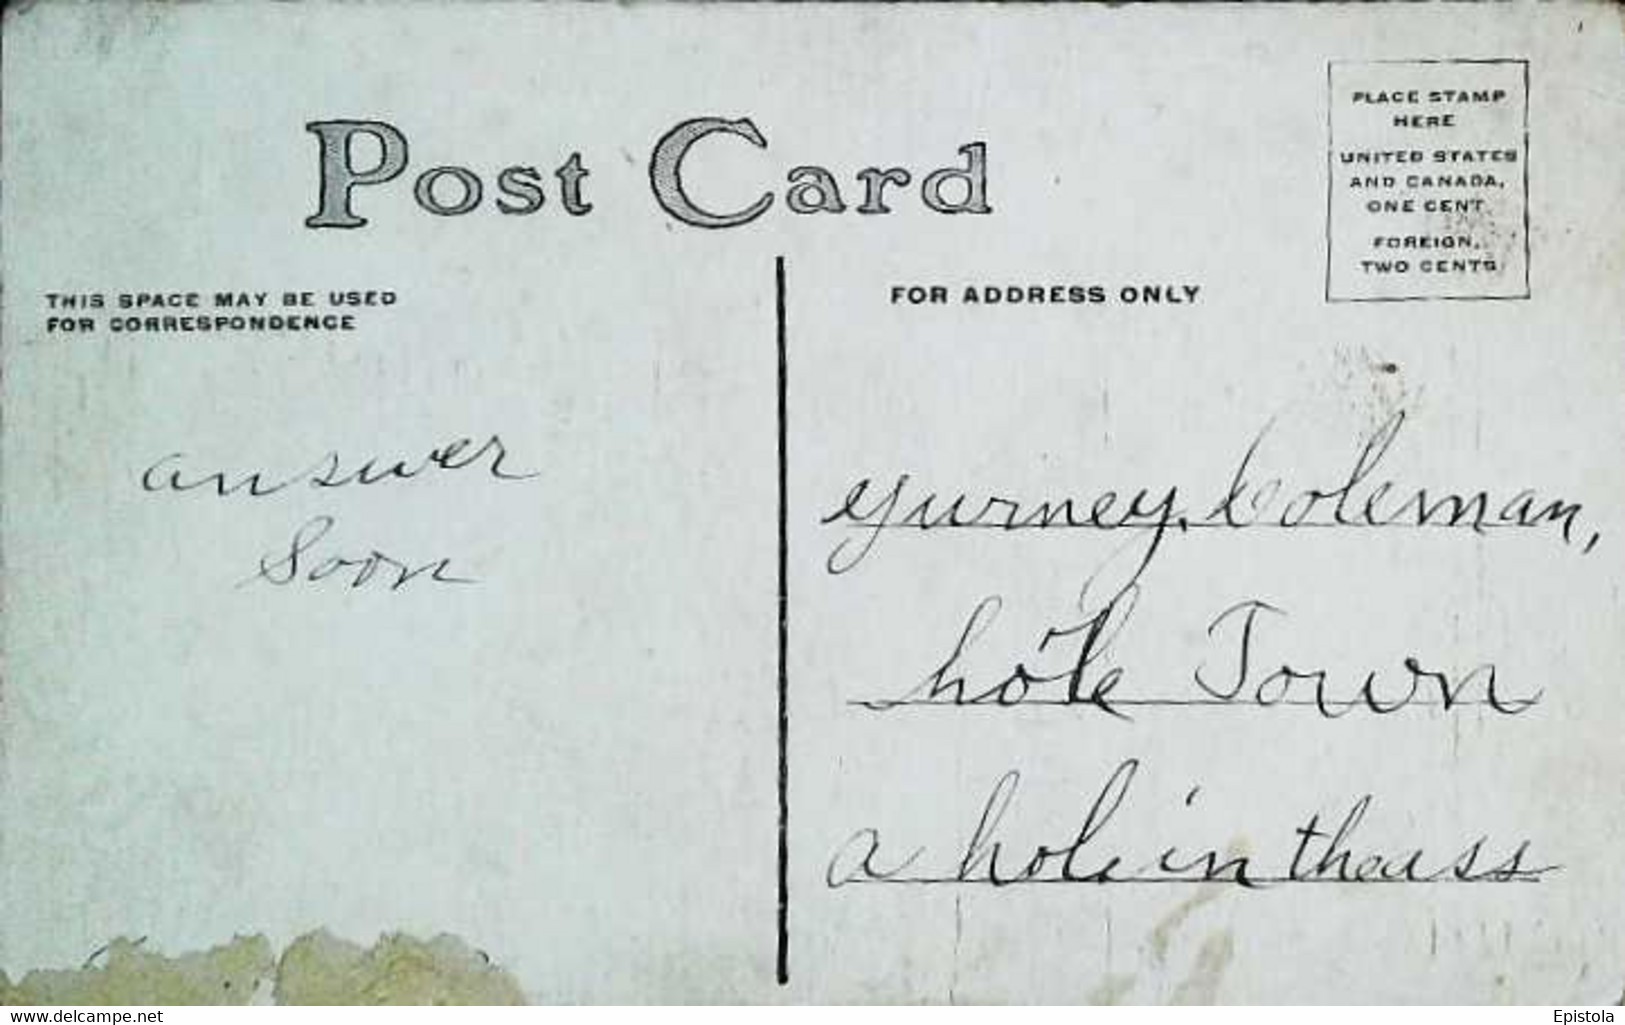 Post Card
PLACE STAMP
HERE
UNITED STATES
AND CANADA,
ONE CENT
FOREIGN,
TWO CENTS
THIS SPACE MAY BE USED
FOR CORRESPONDENCE
FOR ADDRESS ONLY
answer
Soon
Gurney. Coleman,
hole Town
a hole in the ass
www.delcampe.net
Epistola